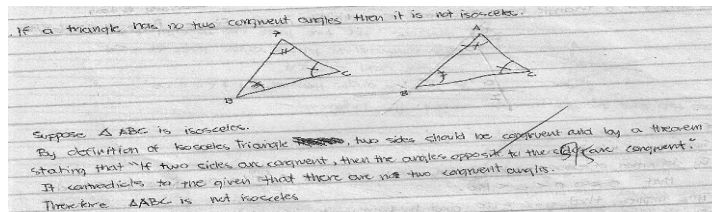 . If a triangle has no two congruent angles then it is not isosceles.
A A
C C
B B
Suppose △ ABC is isosceles.
By definition of Isosceles Triangle, two sides should be congruent and by a theorem
stating that "If two sides are congruent, then the angles opposite to the sides are congruent."
It contradicts to the given that there are not two congruent angles.
Therefore △ABC is not isosceles